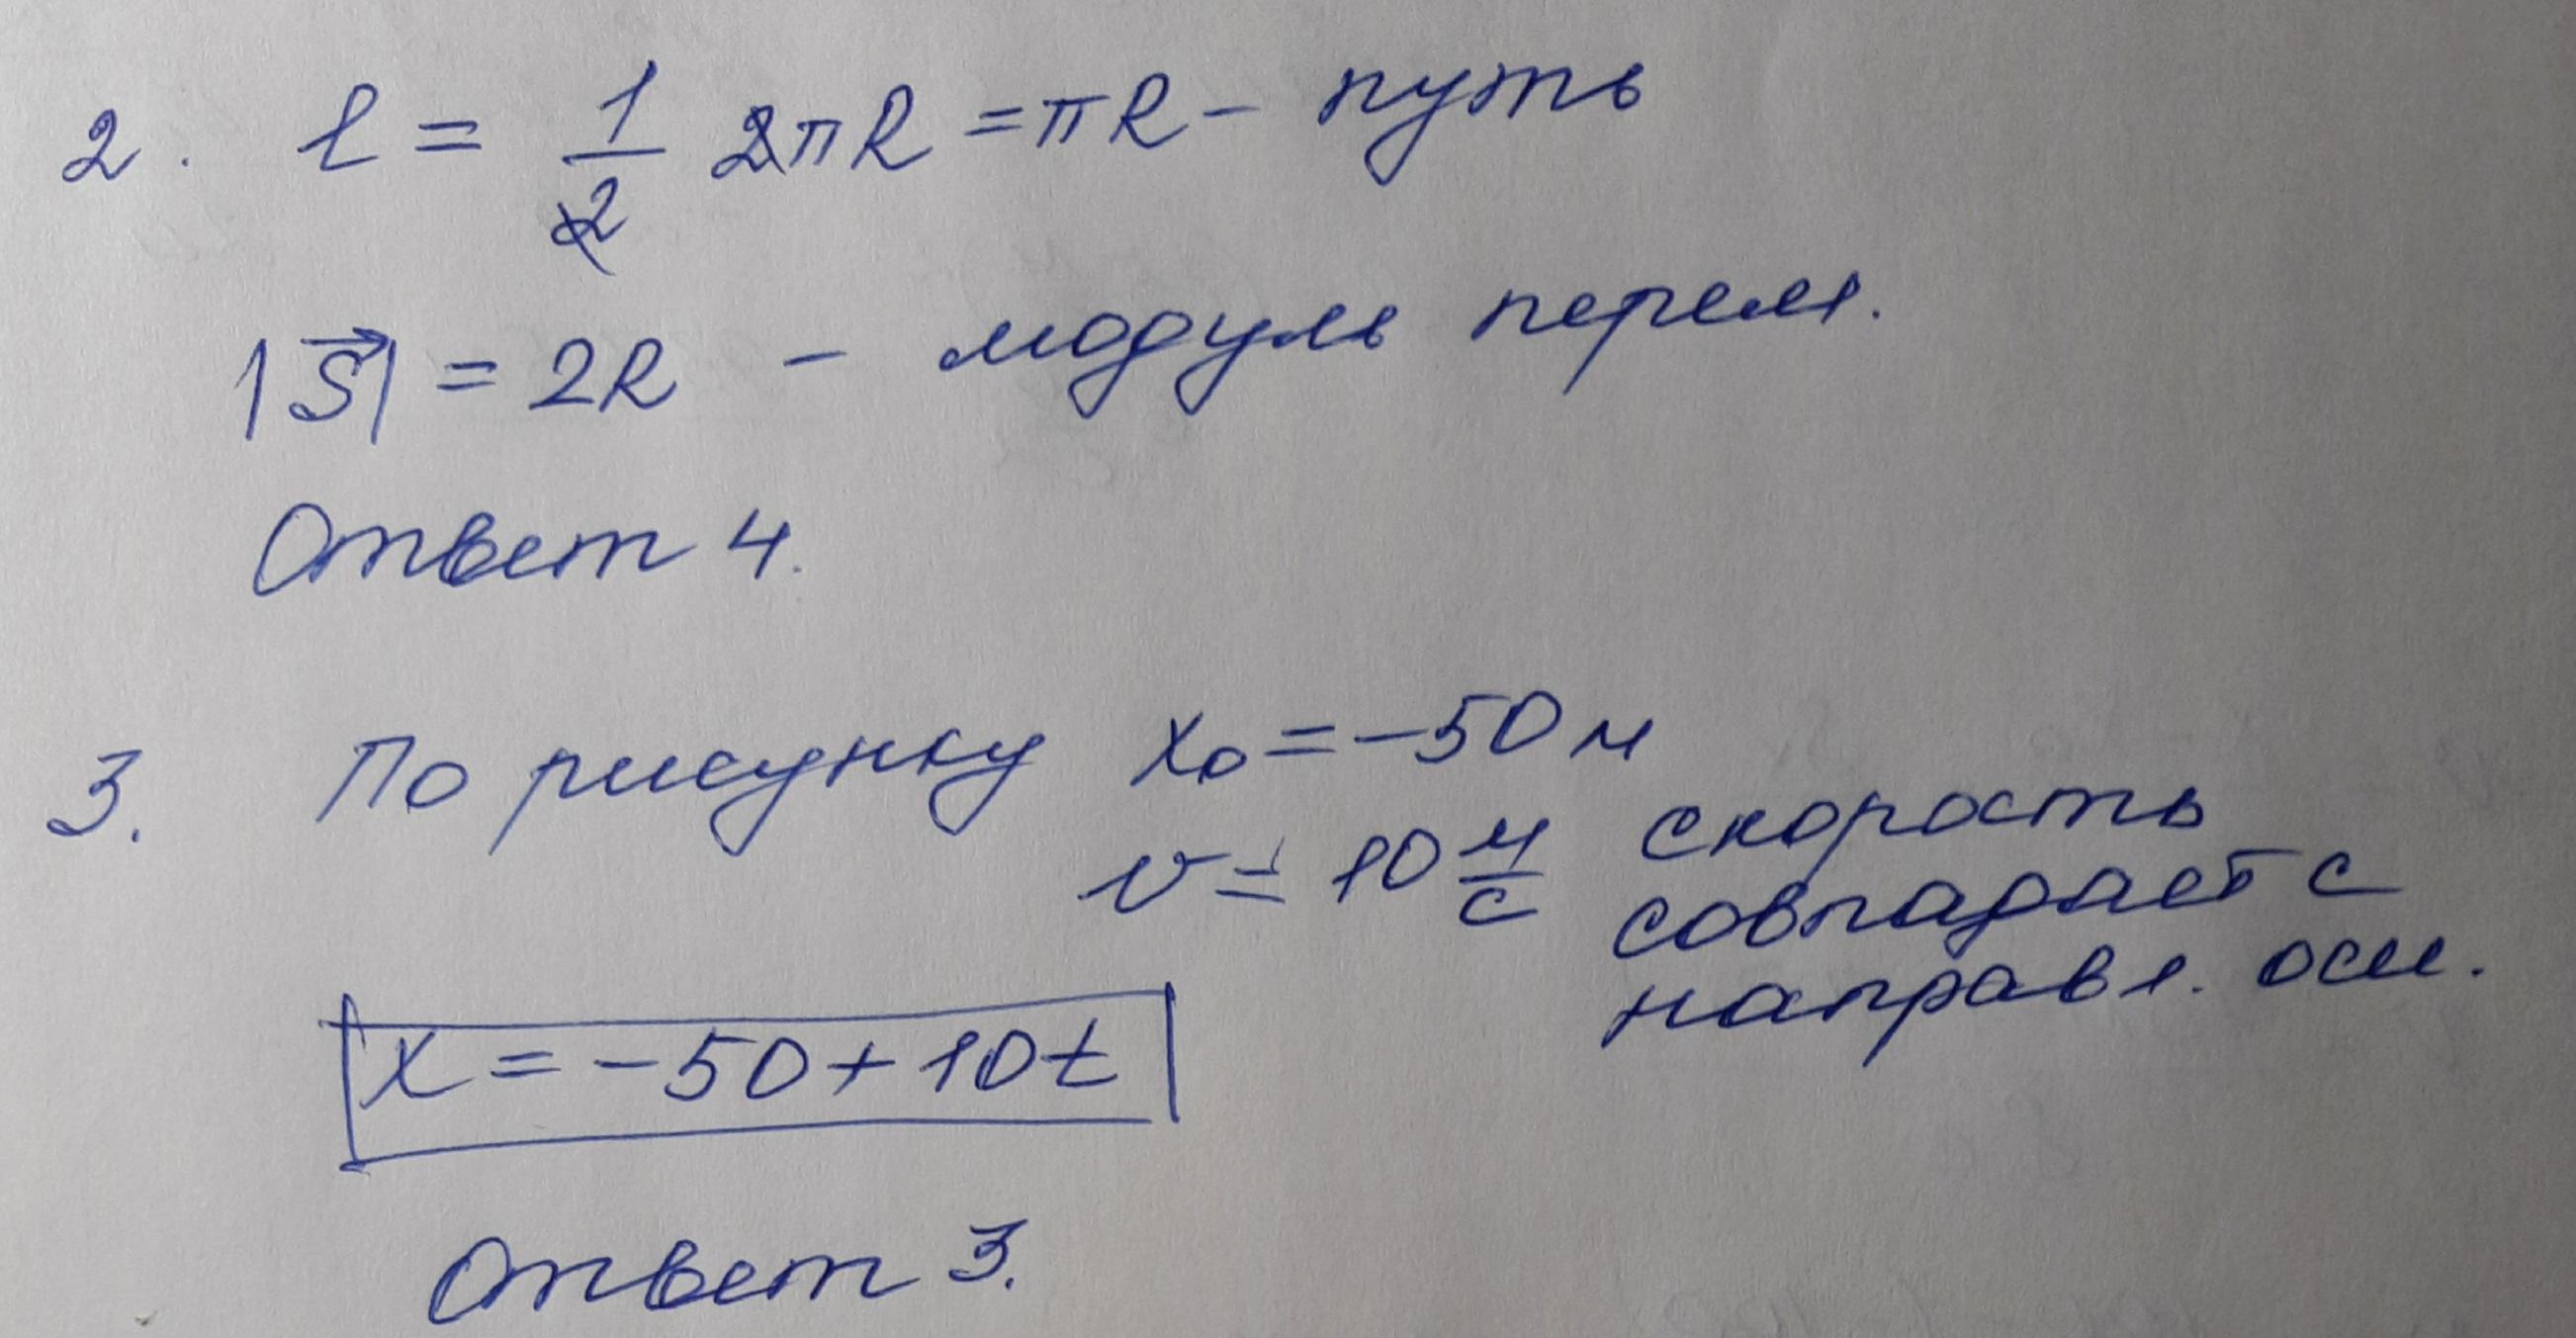 2. l = 1/2 2πR = πR - путь
|S⃗| = 2R - модуль перем.
Ответ 4.
3. По рисунку x₀ = -50 м
v = 10 м/с скорость
совпадает с
направл. оси.
x = -50 + 10t
Ответ 3.